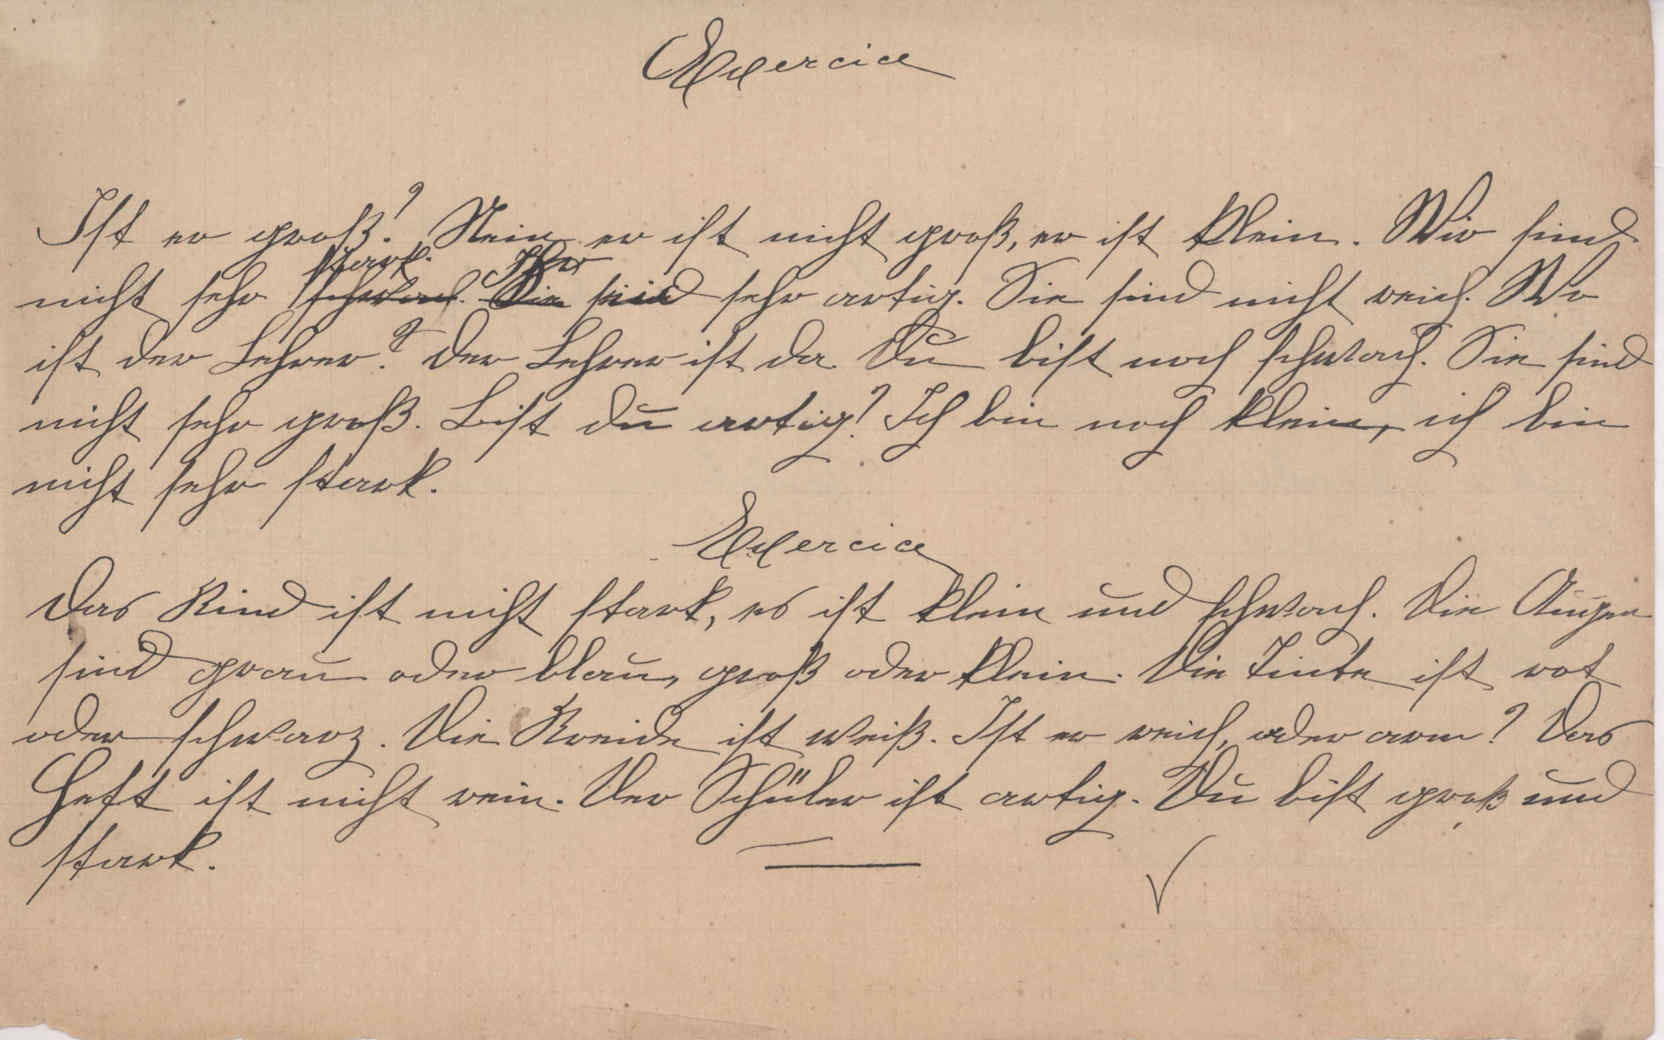 Exercice
Ist er groß? Nein er ist nicht groß, er ist klein. Wir sind
stark. Ihr
nicht sehr schwach. Sie seid sehr artig. Sie sind nicht reich. Wo
ist der Lehrer? Der Lehrer ist da. Du bist noch schwach. Sie sind
nicht sehr groß. Bist du artig? Ich bin noch klein, ich bin
nicht sehr stark.
Exercice
Das Kind ist nicht stark, es ist klein und schwach. Die Augen
sind grau oder blau, groß oder klein. Die Tinte ist rot
oder schwarz. Die Kreide ist weiß. Ist er reich, oder arm? Das
Heft ist nicht rein. Der Schüler ist artig. Du bist groß und
stark.